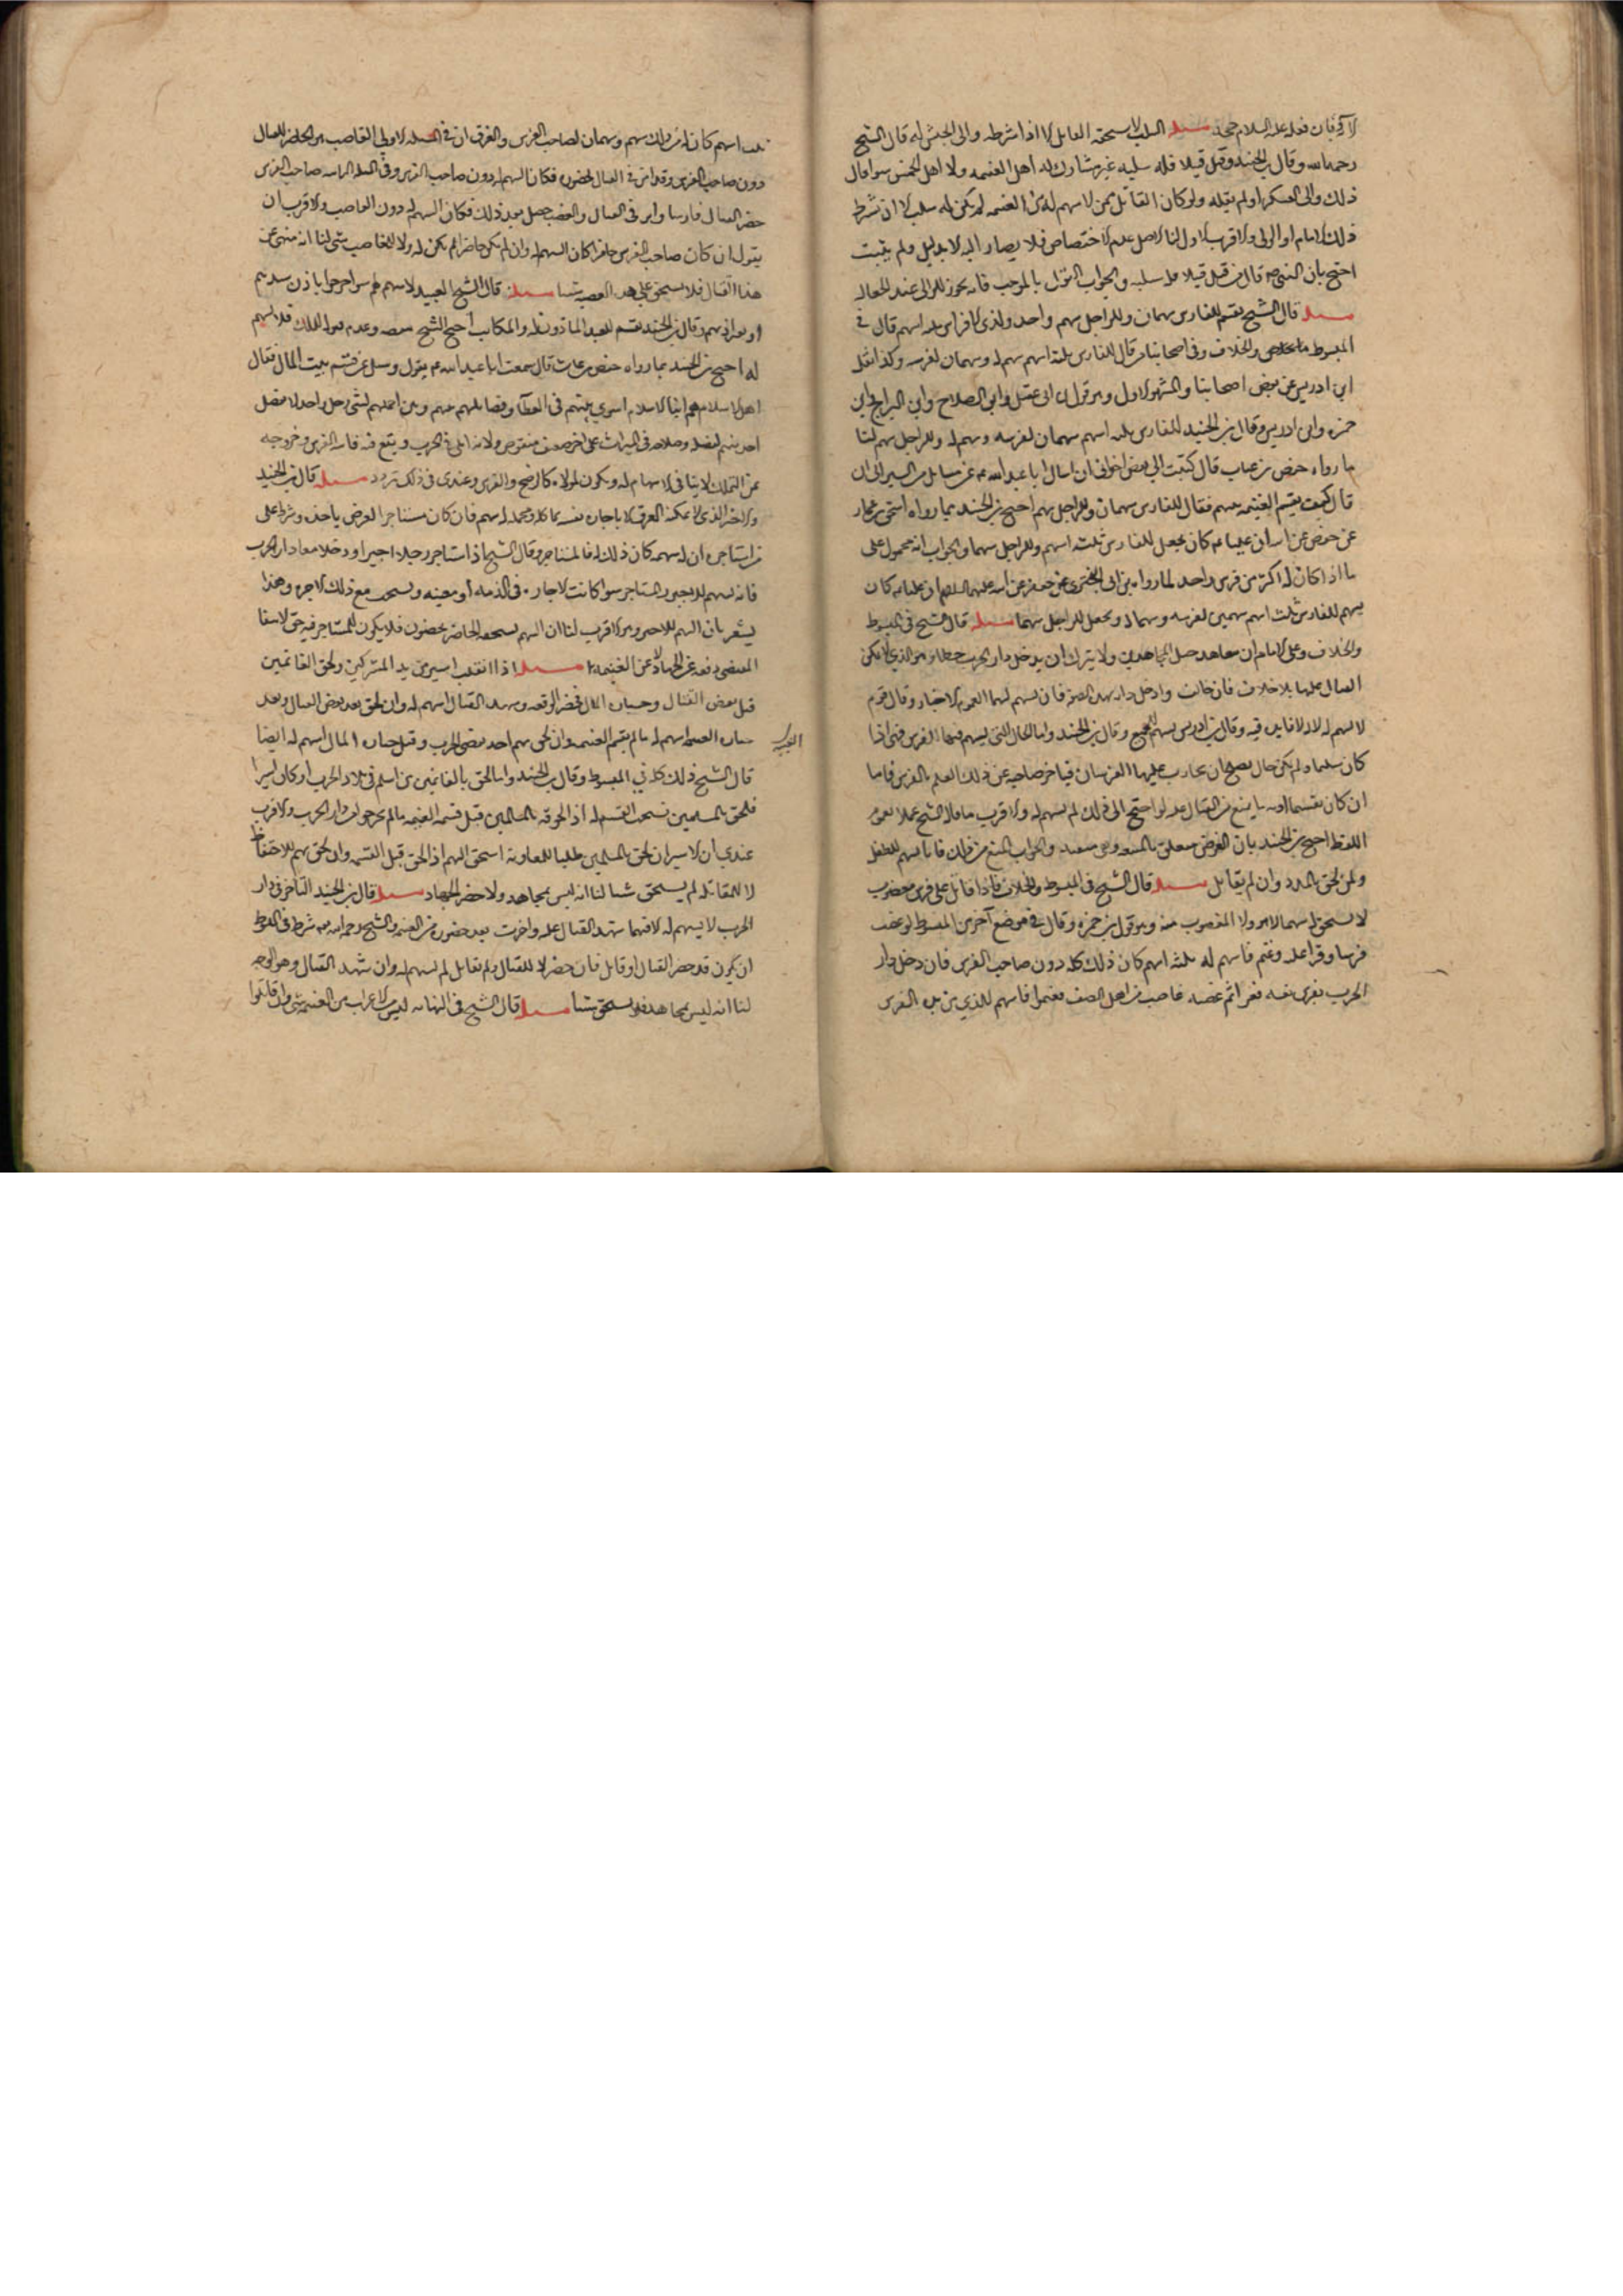 فان فعله عليه السلام حجة مسئلة السلب لا يستحقه القاتل الا اذا شرطه والي الجيش له قال الشيخ
رحمه الله وقال بن الجنيد ومن قتل قتيلا فله سلبه غير مشارك له اهل الغنيمه ولا اهل الخمس سوا قال
ذلك والى العسكر او لم يقله ولو كان القاتل ممن لا سهم له في الغنيمه لم يكن له سلب الا ان شرط
ذلك الامام او الوالي والاقرب الاول لنا الاصل عدم الاختصاص فلا يصار اليه الا بدليل ولم يثبت
احتج بان النبي ص قال من قتل قتيلا فله سلبه والجواب القول بالموجب فانه يجوز للوالي عند الجعاله
مسئلة قال الشيخ يقسم للفارس سهمان وللراجل سهم واحد ولذي الافراس ثلثه اسهم قال في
المبسوط والخلاف وفي اصحابنا من قال للفارس ثلثة اسهم سهم له وسهمان لفرسه وكذا نقل
ابن ادريس عن بعض اصحابنا والمشهور الاول وهو قول ابن ابي عقيل وابي الصلاح وابن البراج وابن
حمزه وابن ادريس وقال بن الجنيد للفارس ثلثه اسهم سهمان لفرسه وسهم له وللراجل سهم لنا
ما رواه حفص بن غياث قال كتبت الي بعض اخواني ان اسال ابا عبد الله عن مسائل من السير الى ان
قال كيف يقسم الغنيمه بينهم فقال للفارس سهمان وللراجل سهم احتج بن الجنيد بما رواه اسحق بن عمار
عن جعفر عن ابيه ان عليا كان يجعل للفارس ثلثه اسهم وللراجل سهما والجواب انه محمول على
ما اذا كان له اكثر من فرس واحد لما رواه بن ابي البختري عن جعفر عن ابيه عليهما السلام ان عليا كان
يسهم للفارس ثلث اسهم سهمين لفرسه وسهما له ويجعل للراجل سهما مسئلة قال الشيخ في المبسوط
والخلاف وعلى الامام ان يتعاهد خيل المجاهدين ولا يترك ان يدخل دار الحرب حطما وهو الذي لا يمكن
القتال عليها بلا خلاف فان خالف وادخل دابه بهذه الصفه فانه يسهم لها لعموم الاخبار وقال قوم
لا يسهم له لانه لا فايده فيه وقال بن ادريس يسهم للجميع وقال بن الجنيد واما الحال التي يسهم فيها الفرس فهي اذا
كان سليما ولم يكن حال يصلح ان يحارب عليها الفرسان فيتاخر صاحبه عن ذلك لعلة بالفرس فاما
ان كان به ما يمنع من القتال عليه لو احتيج الى ذلك لم يسهم له والاقرب ما قاله الشيخ عملا بعموم
اللفظ احتج بن الجنيد بان الغرض والجواب المنع من ذلك فانا نسهم للطفل
ولمن لحق المدد وان لم يقاتل مسئلة قال الشيخ في المبسوط والخلاف فاذا قاتل على فرس مغصوب
لا يستحق له سهما لا هو ولا المغصوب منه وهو قول بن حمزه وقال في موضع آخر من المبسوط لو غصب
فرسا وغزا عليه وغنم فاسهم له ثلثه اسهم كان ذلك كله له دون صاحب الفرس فان دخل دار
الحرب بفرس نفسه فغزا ثم غصبه غاصب من اهل الصف فغنموا فاسهم للذي في يده الفرس
ثلثه اسهم كان له من ذلك سهم وسهمان لصاحب الفرس والفرق ان في المسئله الاولى الغاصب هو الحاضر للقتال
دون صاحب الفرس وقد اثر في القتال بحضوره فكان السهم له دون صاحب الفرس وفي المسئلة الثانيه صاحب الفرس
حضر القتال فارسا واثر في القتال والغصب حصل بعد ذلك فكان السهم له دون الغاصب والاقرب ان
يقول ان كان صاحب الفرس حاضرا كان السهم له وان لم يكن حاضرا لم يكن له ولا للغاصب شي لنا انه منهي عن
هذا القتال فلا يستحق على هذه المعصيه شيئا مسئلة قال الشيخ العبيد لا سهم لهم سوا خرجوا باذن سيدهم
او بغير اذنهم وقال بن الجنيد يقسم للعبد الماذون له والمكاتب احتج الشيخ بنقصه وعدم قبوله للملك فلا سهم
له احتج بن الجنيد بما رواه حفص بن غياث قال سمعت ابا عبد الله يقول وسئل عن قسم بيت المال فقال
اهل الاسلام هم ابنا الاسلام اسوي بينهم في العطا وفضائلهم بينهم وبين الله اجعلهم كبني رجل واحد لا يفضل
احد منهم لفضله وصلاحه في الميراث على اخر ضعيف منقوص ولانه ابلى في الحرب وينتفع فيه فاشبه الفرس وخروجه
عن التملك لا ينافي الاسهام له ويكون لمولاه كالرضخ والفرس وعندي في ذلك تردد مسئلة قال بن الجنيد
والاجير الذي لا يمكنه الغزو الا باجاره نفسه فان كان مستاجرا لعوض ياخذه وشرط على
من استاجره ان له سهمه كان ذلك له فالمستاجر وقال الشيخ اذا استاجر رجل اجيرا ودخلا معا دار الحرب
فانه يسهم للاجير والمستاجر سوا كانت الاجاره في الذمه او معينه ويستحق مع ذلك الاجره وهذا
يشعر بان السهم للاجير وهو الاقرب لنا ان السهم يستحقه الحاضر بحضوره فلا يكون للمستاجر فيه حق لانتفا
المقتضي دفعه عن الجهاد عن الغنيمه مسئلة اذا انفلت اسير من يد المشركين ولحق الغانمين
قبل تقضي القتال وحيازه المال فحضر الوقعه وشهد القتال اسهم له وان لحق بعد تقضي القتال وبعد
حيازه الغنيمه اسهم له ما لم يقسم الغنيمه وان لحق بهم بعد تقضي الحرب وقبل حيازه المال اسهم له ايضا
قال الشيخ ذلك كله في المبسوط وقال بن الجنيد واما لحق بالغانمين من اسلم في بلاد الحرب او كان اسيرا
فلحق بالمسلمين فيستحق القسم له اذا لحوقه بالمسلمين قبل قسمه الغنيمه ما لم يخرجوا من دار الحرب والاقرب
عندي ان الاسير ان لحق بالمسلمين طلبا للمعاونه استحق السهم اذا لحق قبل القسمه وان لحق بهم للاحتفاظ
لا للمقاتله لم يستحق شيئا لنا انه ليس بمجاهد ولا حضر للجهاد مسئلة قال بن الجنيد التاجر في دار
الحرب لا يسهم له الا فيما شهد القتال عليه واخرت بعد حضوره من الغنيمه والشيخ رحمه الله شرط في المبسوط
ان يكون قد حضر القتال او قاتل فان حضر لا للقتال ولم يقاتل لم يسهم له وان شهد القتال وهو الوجه
لنا انه ليس بمجاهد فلا يستحق شيئا مسئلة قال الشيخ في النهايه ليس للاعراب من الغنيمه شي وان قاتلوا